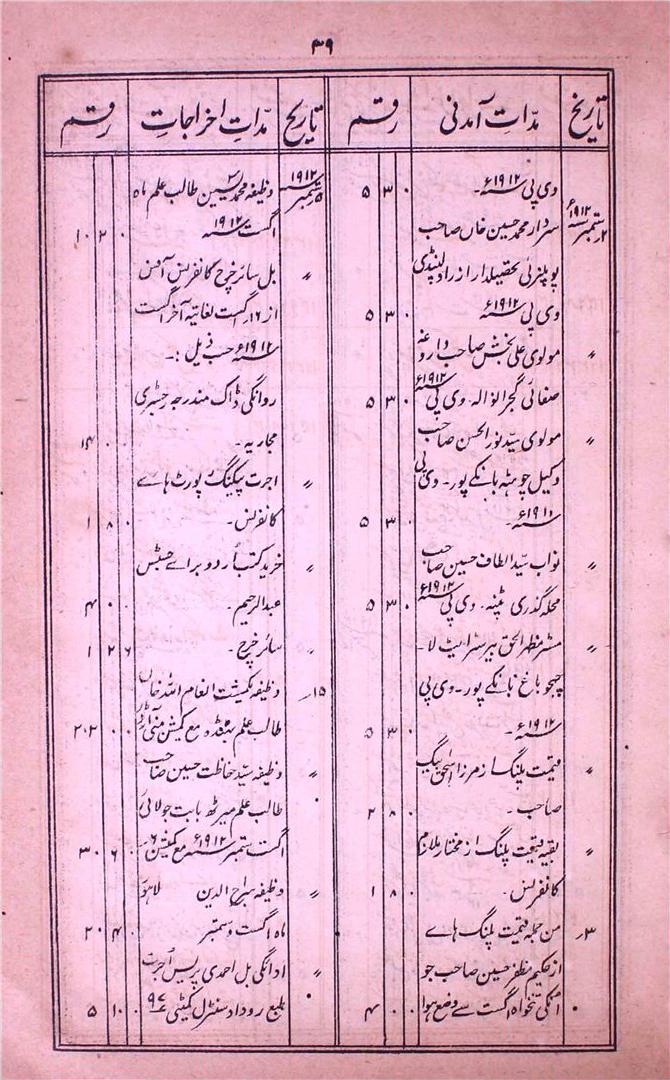 ۳۹
تاریخ مدّاتِ آمدنی رقم تاریخ مدّاتِ اخراجات رقم
وی پی ۱۹۱۲ء۔ ۰ ۳ ۵
۲ ستمبر ۱۹۱۲ء سردار محمد حسین خاں صاحب
پولیٹکل تحصیلدار از راولپنڈی
وی پی ۱۹۱۲ء ۰ ۳ ۵
〃 مولوی علی بخش صاحب داروغہ
صفائی گجرانوالہ۔ وی پی ۱۹۱۲ء ۰ ۳ ۵
〃 مولوی سیّد نورالحسن صاحب
وکیل چوہٹہ بانکے پور۔ وی پی
۱۹۱۱ء۔ ۰ ۳ ۵
〃 نواب سیّد الطاف حسین صاحب
محلہ گذری پٹنہ۔ وی پی ۱۹۱۲ء ۰ ۳ ۵
〃 مسٹر مظہرالحق بیرسٹر ایٹ لا۔
چھجو باغ بانکے پور۔ وی پی
۱۹۱۲ء۔ ۰ ۳ ۵
〃 قیمت پلنگ از مرزا اسحٰق بیگ
صاحب۔ ۰ ۸ ۲
〃 بقیہ قیمت پلنگ از مختار ملازم
کانفرنس۔ ۰ ۸ ۱
۳ر من جملہ قیمت پلنگ ہاے
از حکیم مظفر حسین صاحب جو
انکی تنخواہ اگست سے وضع ہوا ۰ ۰ ۴
۵ ستمبر ۱۹۱۲ء وظیفہ محمد یٰسین طالب علم ماہ
اگست ۱۹۱۲ء ۰ ۲ ۱۰
〃 بل سائر خرچ کانفرنس آفس
از ۱۶ر اگست لغایتہ آخر اگست
۱۹۱۲ء حسب ذیل :۔
روانگی ڈاک مندرجہ رجسٹری
مجاریہ۔ ۰ ۰ ۱۴
〃 اجرت پیکینگ رپورٹ ہاے
کانفرنس۔ ۰ ۸ ۱
〃 خرید کتب اُردو براے جسٹس
عبدالرحیم۔ ۰ ۰ ۴
〃 سائر خرچ۔ ۶ ۲ ۱
۱۵ر وظیفہ یکمشت انعام اللہ خاں
طالب علم مع کمیشن منی آرڈر ۰ ۲ ۲۰۲
〃 وظیفہ سیّد حفاظت حسین صاحب
طالب علم میرٹھ بابت جولائی
اگست ستمبر ۱۹۱۲ء مع کمیشن ۶ر ۰ ۶ ۳۰
〃 وظیفہ سراج الدین لاہور
ماہ اگست و ستمبر ۰ ۴ ۲۰
〃 ادائگی بل احمدی پریس اُجرت
طبع روداد سنٹرل کمیٹی ۰ ۱۰ ۵